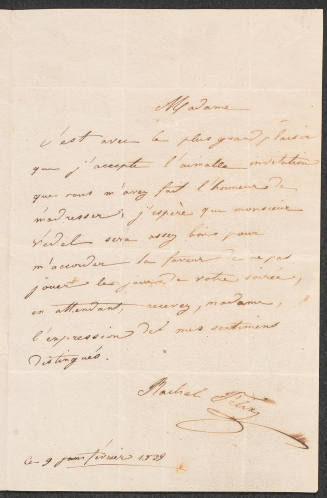 Madame
c'est avec le plus grand plaisir
que j'accepte l'aimable invitation
que vous m'avez fait l'honneur de
m'adresser; j'espère que monsieur
Védel sera assez bon pour
m'accorder la faveur de ne pas
jouer le jour de votre soirée,
en attendant, recevez, madame,
l'expression de mes sentiments
distingués.
Rachel Félix
ce 9 février 1839